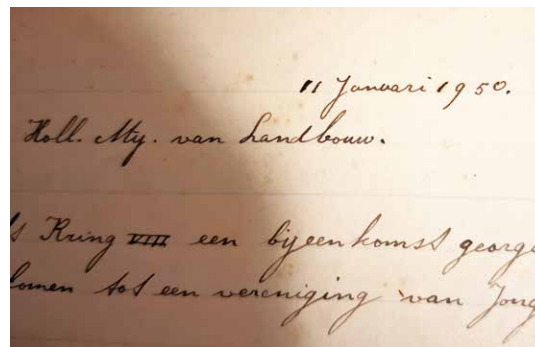 11 Januari 1950.
Holl. My. van Landbouw.
s Kring VIII een bijeenkomst george
komen tot een vereniging van Jong